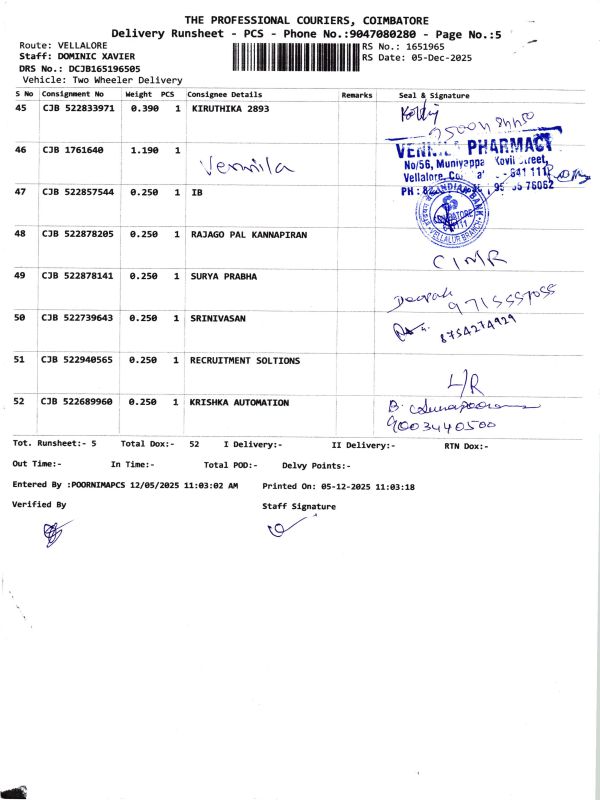 THE PROFESSIONAL COURIERS, COIMBATORE
Delivery Runsheet - PCS - Phone No.:9047080280 - Page No.:5
Route: VELLALORE
RS No.: 1651965
Staff: DOMINIC XAVIER
RS Date: 05-Dec-2025
DRS No.: DCJB165196505
Vehicle: Two Wheeler Delivery
S No Consignment No Weight PCS Consignee Details Remarks Seal & Signature
45 CJB 522833971 0.390 1 KIRUTHIKA 2893
46 CJB 1761640 1.190 1 Vennila
VENNI PHARMACY
No/56, Muniyappa Kovil Street,
Vellalore, 641 111
PH : 76062
47 CJB 522857544 0.250 1 IB
INDIAN BANK
COIMBATORE
VELLALUR BRANCH
48 CJB 522878205 0.250 1 RAJAGO PAL KANNAPIRAN
CIMR
49 CJB 522878141 0.250 1 SURYA PRABHA
Deepak
9715557055
50 CJB 522739643 0.250 1 SRINIVASAN
8754274929
51 CJB 522940565 0.250 1 RECRUITMENT SOLTIONS
L/R
52 CJB 522689960 0.250 1 KRISHKA AUTOMATION
B.
9003440500
Tot. Runsheet:- 5 Total Dox:- 52 I Delivery:- II Delivery:- RTN Dox:-
Out Time:- In Time:- Total POD:- Delvy Points:-
Entered By :POORNIMAPCS 12/05/2025 11:03:02 AM Printed On: 05-12-2025 11:03:18
Verified By Staff Signature